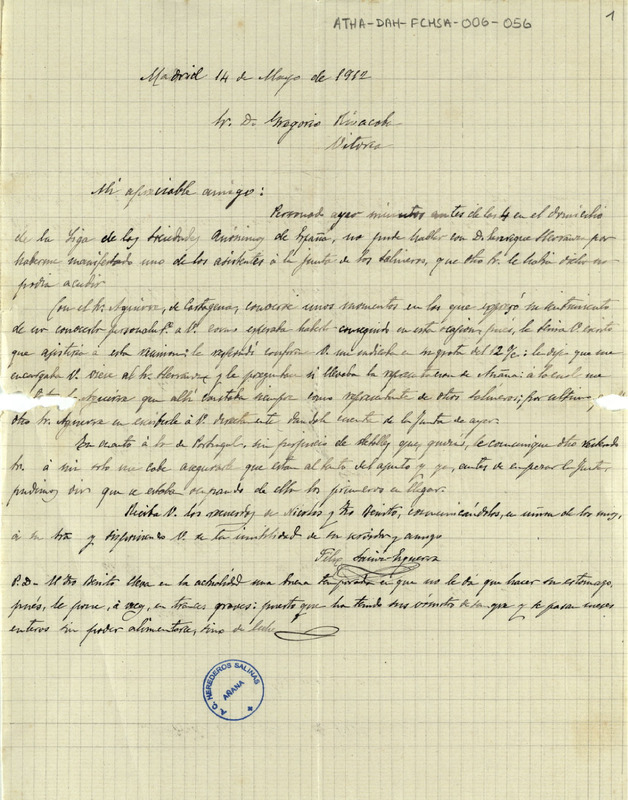 ATHA-DAH-FCHSA-006-056
1
Madrid 14 de Mayo de 1912
Sr. D. Gregorio
Vitoria
Mi apreciable amigo:
Personado ayer minutos antes de las 4 en el domicilio
de la Liga de las Sociedades Anónimas de España, no pude hablar con D. Enrique Herránz por
haberme manifestado uno de los asistentes á la Junta de los Salineros, que dho Sr. le había dicho no
podía acudir
Con el Sr. Aguirre, de Cartagena, conversé unos momentos en los que expresó su sentimiento
de no conocerle personalmte á V. como esperaba haberlo conseguido en esta ocasión, pues, le tenía V. escrito
que asistiría á esta reunion: le respondí conforme V. me indicaba en su grata del 12 %: le dije que me
encargaba V. viera al Sr. Herránz y le preguntara si llevaba la representacion de Añana: á lo cual me
Aguirre que allí constaba siempre como representante de otros Salineros; por ultimo,
dho Sr. Aguirre en escribirle á V. directamente dándole cuenta de la Junta de ayer.
En cuanto á lo de Portugal, sin perjuicio de detalles que, quizás, le comunique dho
Sr. á mi solo me cabe asegurarle que estan al tanto del asunto y ya, antes de empezar la Junta,
pudimos oir que se estaba ocupando de ello los primeros en llegar.
Reciba V. los recuerdos de Nicolás y tio Benito, comunicándolos, en union de los mios,
á su Sra y disponiendo V. de la inutilidad de su servidor y amigo
Felix
P.D.= El tio Benito lleva en la actualidad una buena temporada en que no le da que hacer su estomago,
pués, le pone, á veces, en trances graves: puesto que ha tenido sus vómitos de sangre y se pasan meses
enteros sin poder alimentarse, sino de leche
A.C. HEREDEROS SALINAS
AÑANA